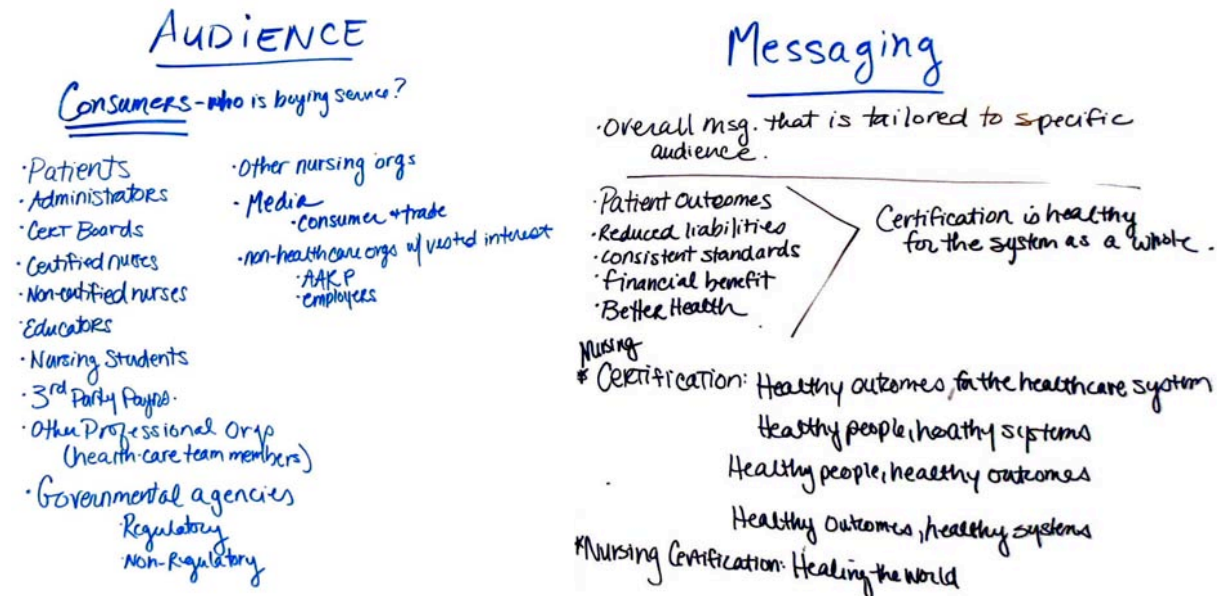 AUDIENCE
Consumers - who is buying service?
·Patients
·Administrators
·CERT Boards
·Certified nurses
·Non-certified nurses
·Educators
·Nursing Students
·3rd Party Payors.
·Other Professional Orgs
(health-care team members)
·Governmental agencies
·Regulatory
·Non-Regulatory
·Other nursing orgs
·Media
·consumer + trade
·non-healthcare orgs w/ vested interest
·AAKP
·employers
Messaging
·Overall msg. that is tailored to specific
audience.
·Patient Outcomes
·Reduced liabilities
·consistent standards
·financial benefit
·Better Health
Certification is healthy
for the system as a whole.
Nursing
* Certification: Healthy outcomes, for the healthcare system
Healthy people, heathy systems
Healthy people, healthy outcomes
Healthy outcomes, healthy systems
*Nursing Certification: Healing the world